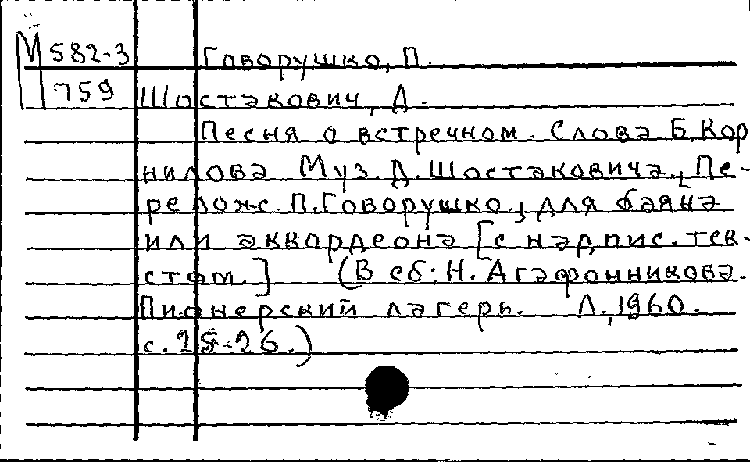 М 582-3 Говорушко, П.
759 Шостакович, Д.
Песня о встречном. Слова Б. Кор
нилова Муз. Д. Шостаковича, Пе-
релож. П. Говорушко, для баяна
или аккордеона [с надпис. тек-
стом.] (В сб: Н. Агафонникова.
Пионерский лагерь. Л., 1960.
с. 25-26.)